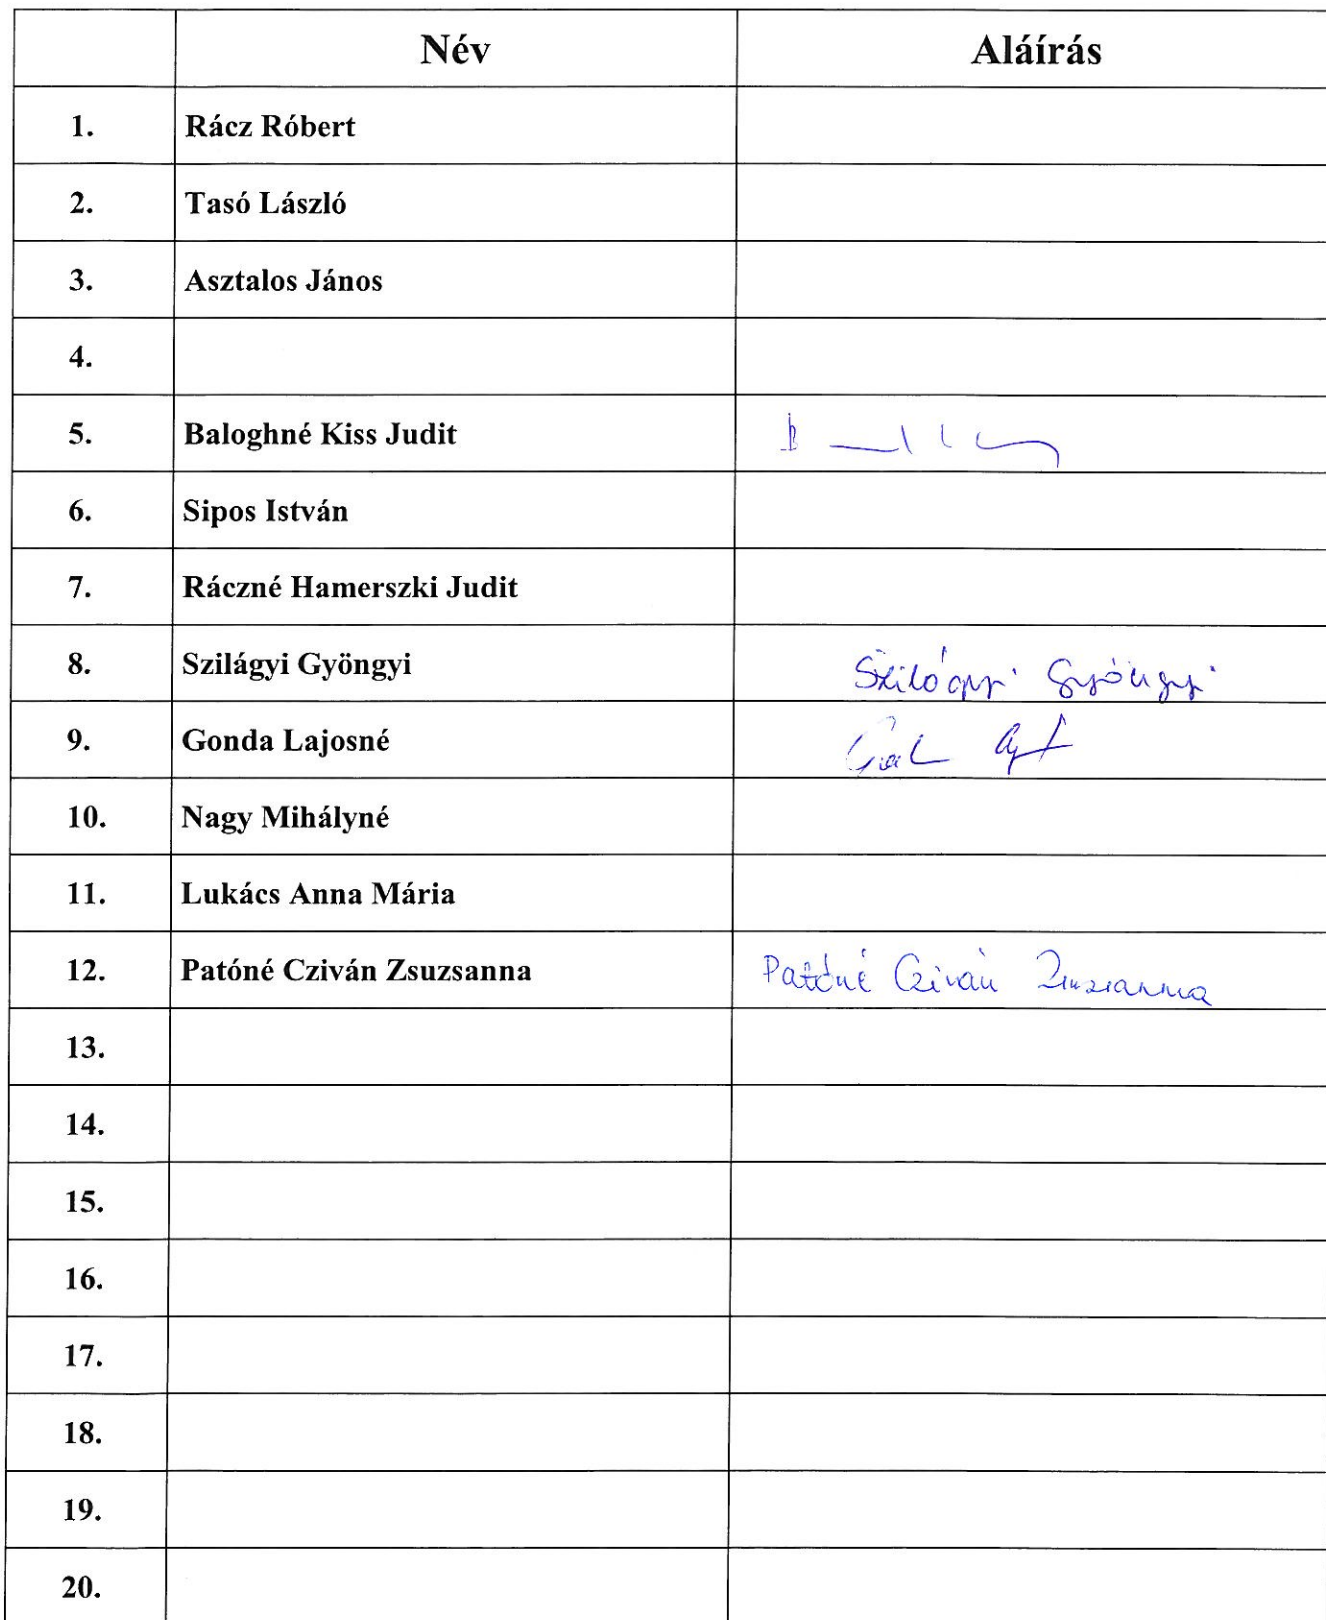 Név Aláírás
1. Rácz Róbert
2. Tasó László
3. Asztalos János
4.
5. Baloghné Kiss Judit
6. Sipos István
7. Ráczné Hamerszki Judit
8. Szilágyi Gyöngyi Szilágyi Gyöngyi
9. Gonda Lajosné
10. Nagy Mihályné
11. Lukács Anna Mária
12. Patóné Cziván Zsuzsanna Patóné Cziván Zsuzsanna
13.
14.
15.
16.
17.
18.
19.
20.